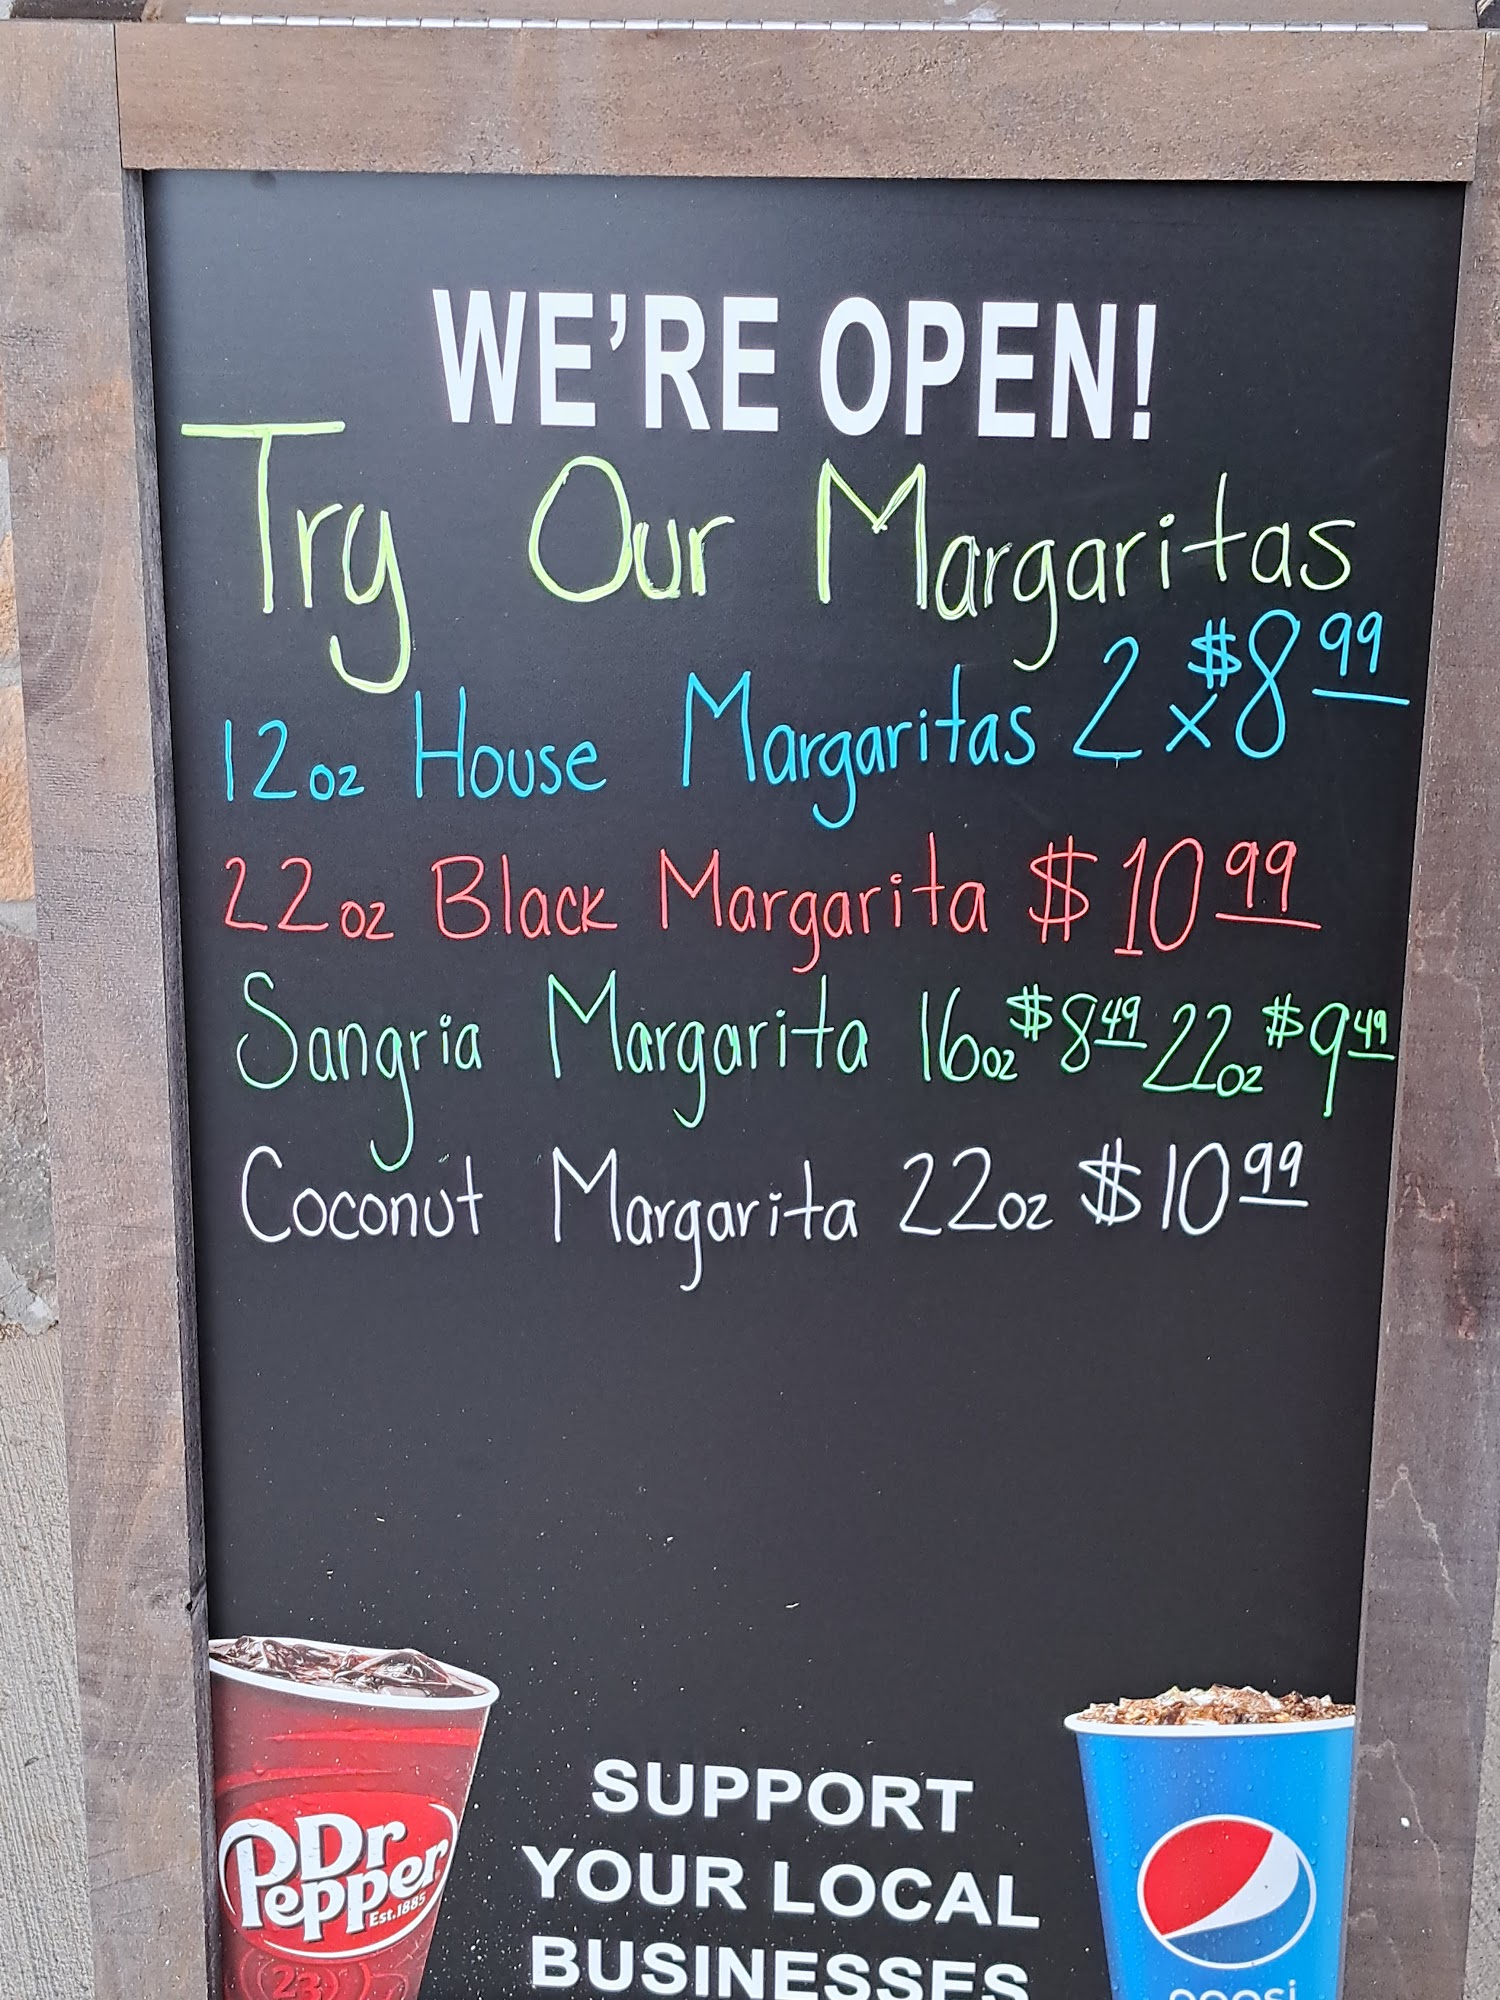 WE'RE OPEN!
Try Our Margaritas
12oz House Margaritas 2 x $8 99
22oz Black Margarita $10 99
Sangria Margarita 16oz $8 49 22oz $9 49
Coconut Margarita 22oz $10 99
SUPPORT
YOUR LOCAL
BUSINESSES
Dr
Pepper
Est.1885
23
pepsi